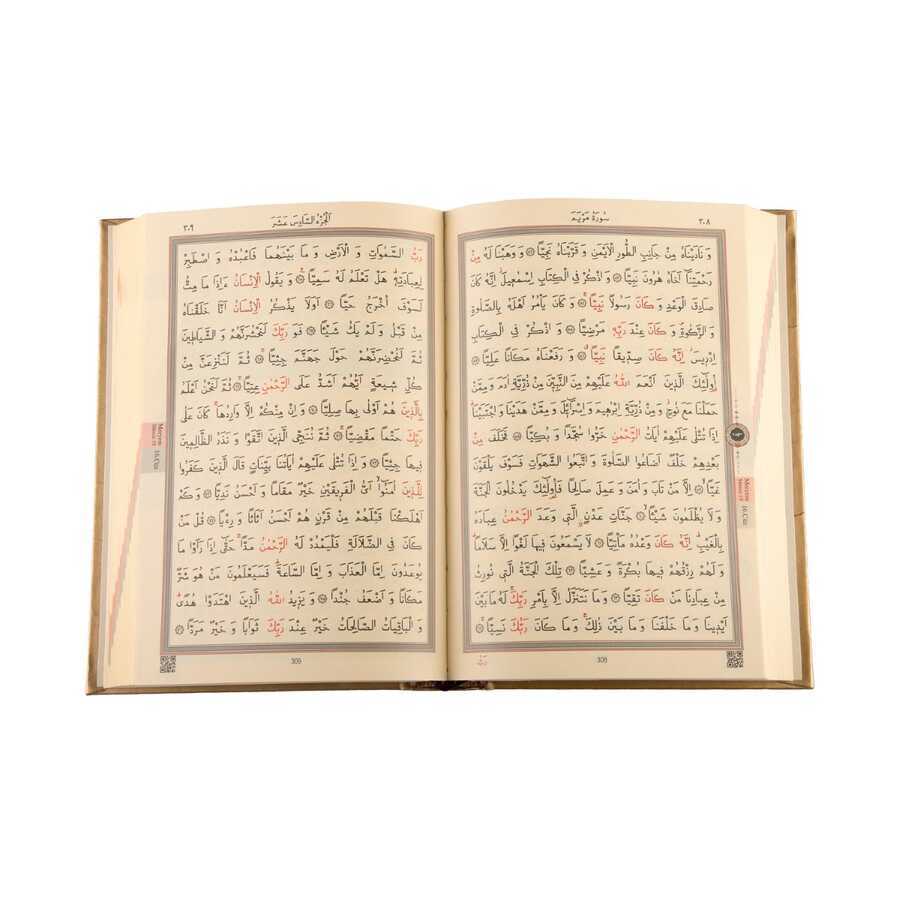 ٣٠٨
سُورَةُ مَرْيَمَ
وَ نَادَيْنَاهُ مِنْ جَانِبِ الطُّورِ الْاَيْمَنِ وَ قَرَّبْنَاهُ نَجِيًّا وَ وَهَبْنَا لَهُ مِنْ
رَحْمَتِنَا اَخَاهُ هٰرُونَ نَبِيًّا وَ اذْكُرْ فِي الْكِتَابِ اِسْمٰعِيلَ اِنَّهُ كَانَ
صَادِقَ الْوَعْدِ وَ كَانَ رَسُولًا نَبِيًّا وَ كَانَ يَأْمُرُ اَهْلَهُ بِالصَّلٰوةِ
وَ الزَّكٰوةِ وَ كَانَ عِنْدَ رَبِّهِ مَرْضِيًّا وَ اذْكُرْ فِي الْكِتَابِ
اِدْرِيسَ اِنَّهُ كَانَ صِدِّيقًا نَبِيًّا وَ رَفَعْنَاهُ مَكَانًا عَلِيًّا
اُولٰئِكَ الَّذِينَ اَنْعَمَ اللّٰهُ عَلَيْهِمْ مِنَ النَّبِيّٖنَ مِنْ ذُرِّيَّةِ اٰدَمَ وَ مِمَّنْ
حَمَلْنَا مَعَ نُوحٍ وَ مِنْ ذُرِّيَّةِ اِبْرٰهِيمَ وَ اِسْرَائِلَ وَ مِمَّنْ هَدَيْنَا وَ اجْتَبَيْنَا
اِذَا تُتْلٰى عَلَيْهِمْ اٰيَاتُ الرَّحْمٰنِ خَرُّوا سُجَّدًا وَ بُكِيًّا فَخَلَفَ مِنْ
بَعْدِهِمْ خَلْفٌ اَضَاعُوا الصَّلٰوةَ وَ اتَّبَعُوا الشَّهَوَاتِ فَسَوْفَ يَلْقَوْنَ
غَيًّا اِلَّا مَنْ تَابَ وَ اٰمَنَ وَ عَمِلَ صَالِحًا فَاُولٰئِكَ يَدْخُلُونَ الْجَنَّةَ
وَ لَا يُظْلَمُونَ شَيْئًا جَنَّاتِ عَدْنٍ الَّتِي وَعَدَ الرَّحْمٰنُ عِبَادَهُ
بِالْغَيْبِ اِنَّهُ كَانَ وَعْدُهُ مَأْتِيًّا لَا يَسْمَعُونَ فِيهَا لَغْوًا اِلَّا سَلَامًا
وَ لَهُمْ رِزْقُهُمْ فِيهَا بُكْرَةً وَ عَشِيًّا تِلْكَ الْجَنَّةُ الَّتِي نُورِثُ
مِنْ عِبَادِنَا مَنْ كَانَ تَقِيًّا وَ مَا نَتَنَزَّلُ اِلَّا بِاَمْرِ رَبِّكَ لَهُ مَا بَيْنَ
اَيْدِينَا وَ مَا خَلْفَنَا وَ مَا بَيْنَ ذٰلِكَ وَ مَا كَانَ رَبُّكَ نَسِيًّا
رَبُّ
308
Meryem
Sûresi 19
16.Cüz
٣٠٩
اَلْجُزْءُ السَّادِسَ عَشَرَ
رَبُّ السَّمٰوَاتِ وَ الْاَرْضِ وَ مَا بَيْنَهُمَا فَاعْبُدْهُ وَ اصْطَبِرْ
لِعِبَادَتِهِ هَلْ تَعْلَمُ لَهُ سَمِيًّا وَ يَقُولُ الْاِنْسَانُ ءَاِذَا مَا مِتُّ
لَسَوْفَ اُخْرَجُ حَيًّا اَوَلَا يَذْكُرُ الْاِنْسَانُ اَنَّا خَلَقْنَاهُ
مِنْ قَبْلُ وَ لَمْ يَكُ شَيْئًا فَوَ رَبِّكَ لَنَحْشُرَنَّهُمْ وَ الشَّيَاطِينَ
ثُمَّ لَنُحْضِرَنَّهُمْ حَوْلَ جَهَنَّمَ جِثِيًّا ثُمَّ لَنَنْزِعَنَّ مِنْ
كُلِّ شِيعَةٍ اَيُّهُمْ اَشَدُّ عَلَى الرَّحْمٰنِ عِتِيًّا ثُمَّ لَنَحْنُ اَعْلَمُ
بِالَّذِينَ هُمْ اَوْلٰى بِهَا صِلِيًّا وَ اِنْ مِنْكُمْ اِلَّا وَارِدُهَا كَانَ عَلٰى
رَبِّكَ حَتْمًا مَقْضِيًّا ثُمَّ نُنَجِّي الَّذِينَ اتَّقَوْا وَ نَذَرُ الظَّالِمِينَ
فِيهَا جِثِيًّا وَ اِذَا تُتْلٰى عَلَيْهِمْ اٰيَاتُنَا بَيِّنَاتٍ قَالَ الَّذِينَ كَفَرُوا
لِلَّذِينَ اٰمَنُوا اَيُّ الْفَرِيقَيْنِ خَيْرٌ مَقَامًا وَ اَحْسَنُ نَدِيًّا وَ كَمْ
اَهْلَكْنَا قَبْلَهُمْ مِنْ قَرْنٍ هُمْ اَحْسَنُ اَثَاثًا وَ رِءْيًا قُلْ مَنْ
كَانَ فِي الضَّلَالَةِ فَلْيَمْدُدْ لَهُ الرَّحْمٰنُ مَدًّا حَتّٰى اِذَا رَاَوْا مَا
يُوعَدُونَ اِمَّا الْعَذَابَ وَ اِمَّا السَّاعَةَ فَسَيَعْلَمُونَ مَنْ هُوَ شَرٌّ
مَكَانًا وَ اَضْعَفُ جُنْدًا وَ يَزِيدُ اللّٰهُ الَّذِينَ اهْتَدَوْا هُدًى
وَ الْبَاقِيَاتُ الصَّالِحَاتُ خَيْرٌ عِنْدَ رَبِّكَ ثَوَابًا وَ خَيْرٌ مَرَدًّا
309
Meryem
Sûresi 19
16.Cüz